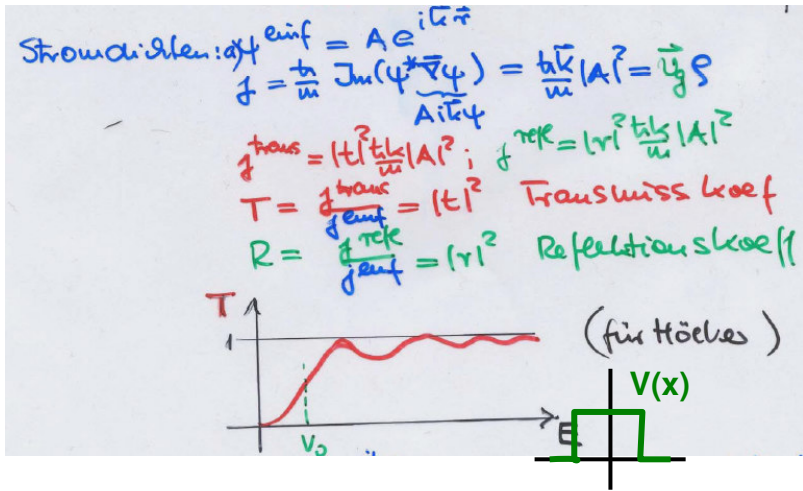 Stromdichten: a) ψ^einf = A e^{i k⃗ r⃗}
j = ħ/m Im(ψ* ∇⃗ψ) = ħk⃗/m |A|² = v⃗_g ρ
A i k⃗ ψ
j^trans = |t|² ħk/m |A|² ; j^refl = |r|² ħk/m |A|²
T = j^trans / j^einf = |t|² Transmisskoef
R = j^refl / j^einf = |r|² Reflektionskoeff
T
1
(für Höcker)
V(x)
E
V₀